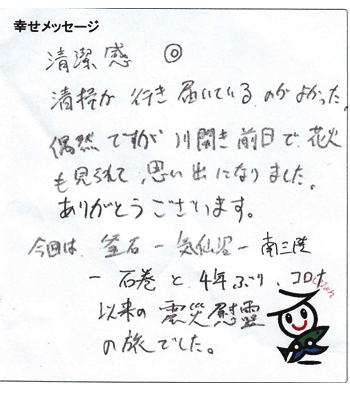 幸せメッセージ
清潔感 ◎
清掃が行き届いているのがよかった。
偶然ですが川開き前日で、花火
も見られて、思い出になりました。
ありがとうございます。
今回は、釜石－気仙沼－南三陸
－石巻と、4年ぶり、コロナ
以来の震災慰霊
の旅でした。